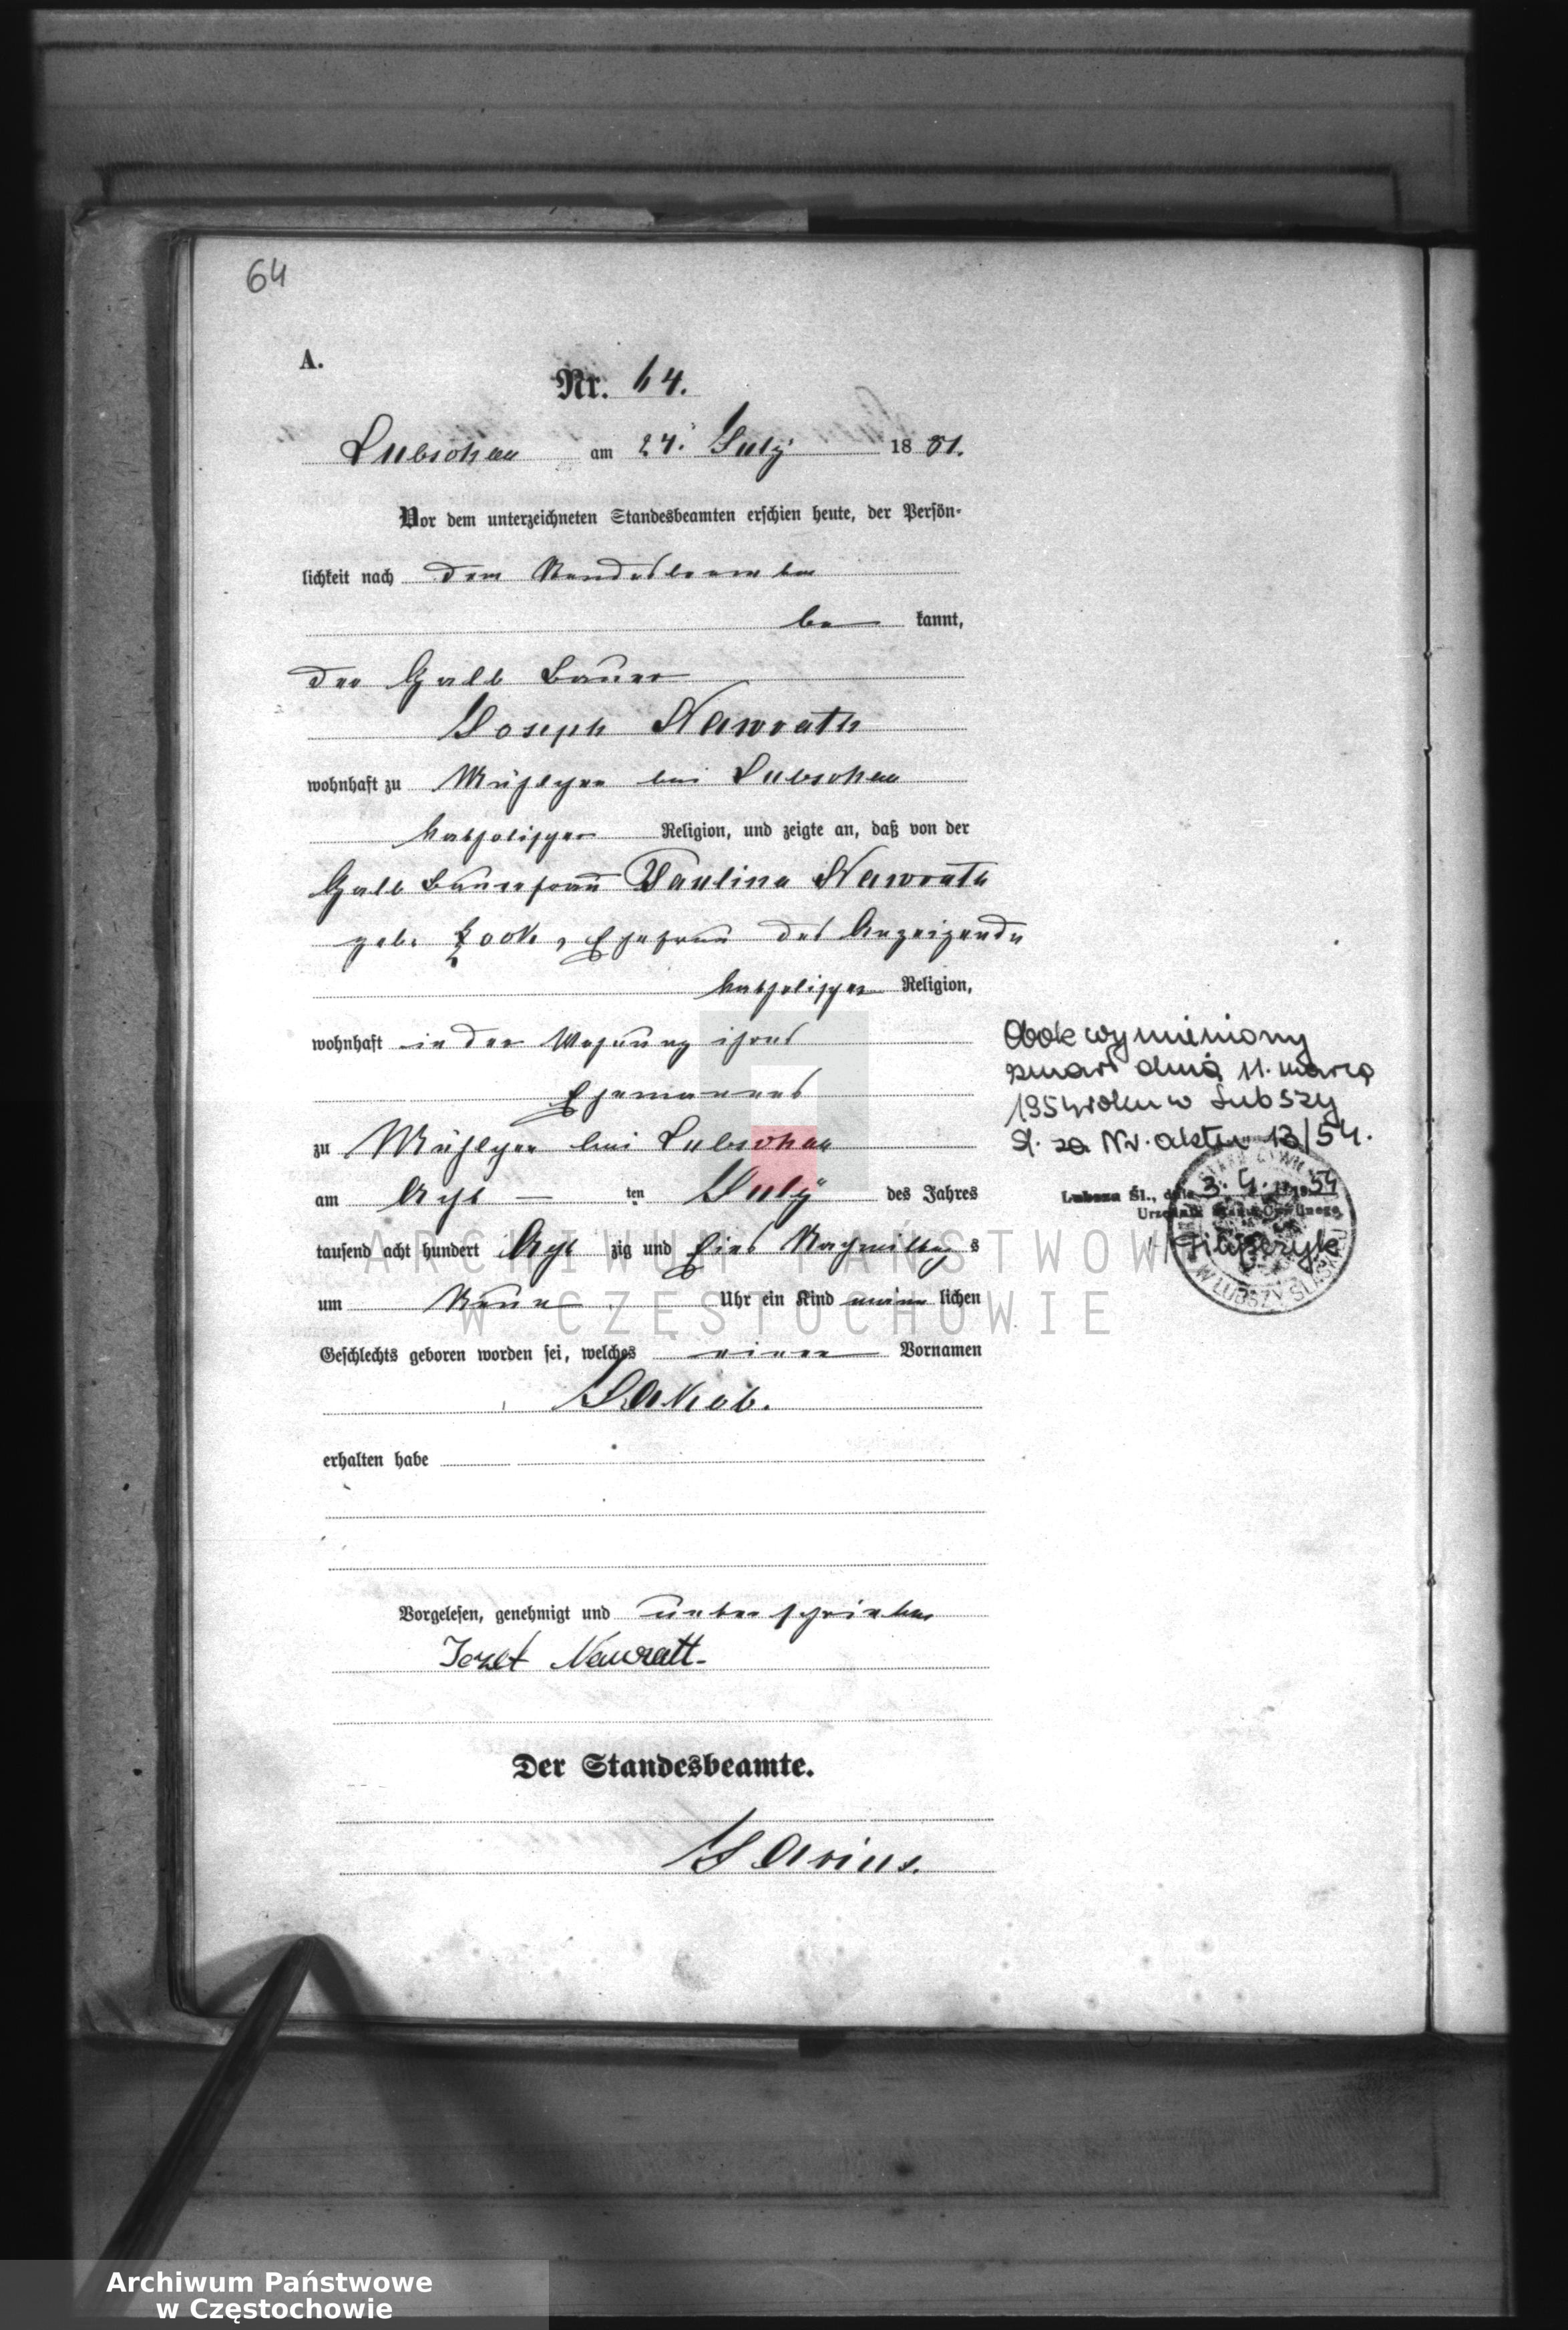 64
A.
Nr. 64.
Lubschau am 24. July 1881.
Vor dem unterzeichneten Standesbeamten erschien heute, der Persön-
lichkeit nach dem Standesbeamten
be kannt,
der Halb Bauer
Joseph Nawrath
wohnhaft zu bei Lubschau
katholischer Religion, und zeigte an, daß von der
Halb Bauersfrau Paulina Nawrath
geb. Zook, Ehefrau des Anzeigenden
katholischer Religion,
wohnhaft in der Wohnung ihres
Ehemannes
zu bei Lubschau
am Acht ten July des Jahres
tausend acht hundert Acht zig und Eins Nachmittag s
um Neun Uhr ein Kind männ lichen
Geschlechts geboren worden sei, welches einen Vornamen
Jakob.
erhalten habe
Vorgelesen, genehmigt und unterschrieben
Jozef Nawratt
Der Standesbeamte.
Obok wymieniony
zmarł dnia 11. marca
1954 roku w Lubszy
Śl. za Nr. aktu 13/54.
Lubsza Śl., dnia 3. 4. 1954
Urzędnik Stanu Cywilnego
W LUBSZY ŚLĄSKIEJ
ARCHIWUM PAŃSTWOW
W CZĘSTOCHOWIE
Archiwum Państwowe
w Częstochowie